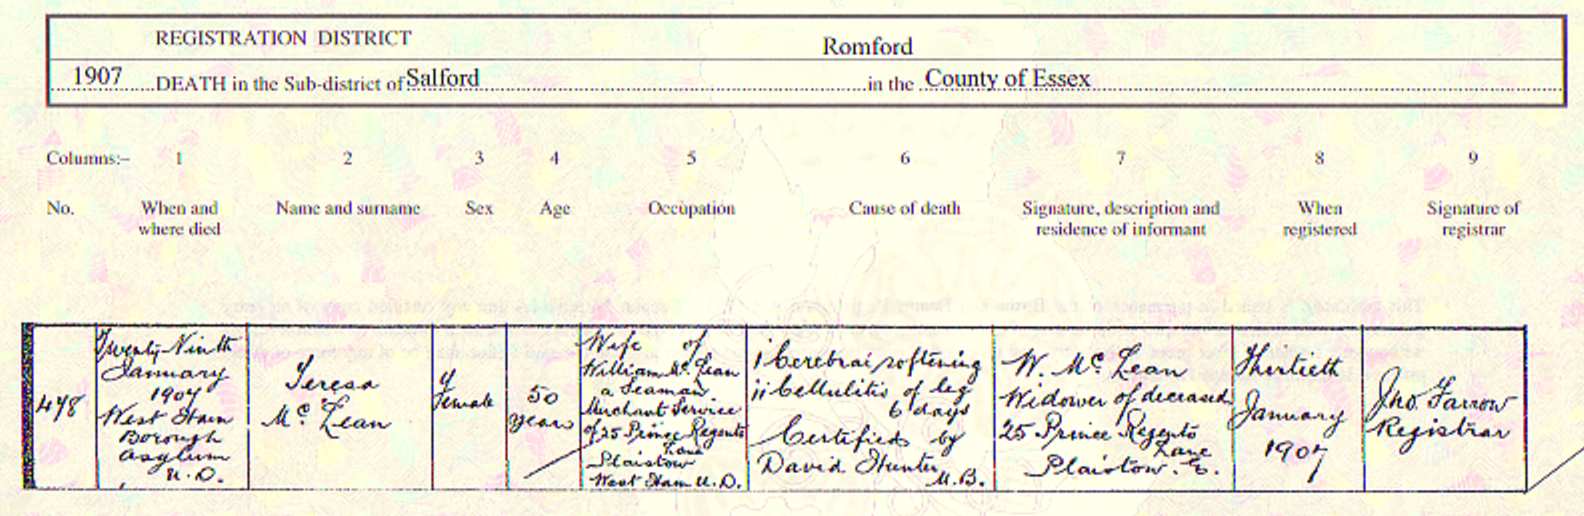 REGISTRATION DISTRICT Romford
1907 DEATH in the Sub-district of Salford in the County of Essex
Columns:– 1 2 3 4 5 6 7 8 9
No. When and where died Name and surname Sex Age Occupation Cause of death Signature, description and residence of informant When registered Signature of registrar
478
Twenty-Ninth
January
1907
West Ham
Borough
Asylum
U.D.
Teresa
Mc Lean
Female
50
years
Wife of
William Mc Lean
a Seaman
Merchant Service
of 25 Prince Regents
Lane
Plaistow
West Ham U.D.
i Cerebral softening
ii Cellulitis of leg
6 days
Certified by
David Hunter
M.B.
W. Mc Lean
Widower of deceased
25 Prince Regents
Lane
Plaistow. E.
Thirtieth
January
1907
Jno. Farrow
Registrar